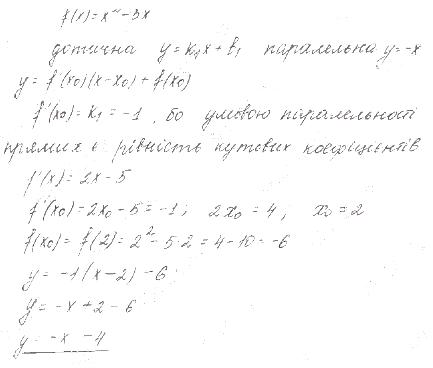 f(x) = x² - 5x
дотична y = k₁x + b₁ паралельна y = -x
y = f'(x₀)(x - x₀) + f(x₀)
f'(x₀) = k₁ = -1, бо умовою паралельності
прямих є рівність кутових коефіцієнтів
f'(x) = 2x - 5
f'(x₀) = 2x₀ - 5 = -1; 2x₀ = 4; x₀ = 2
f(x₀) = f(2) = 2² - 5·2 = 4 - 10 = -6
y = -1(x - 2) - 6
y = -x + 2 - 6
y = -x - 4